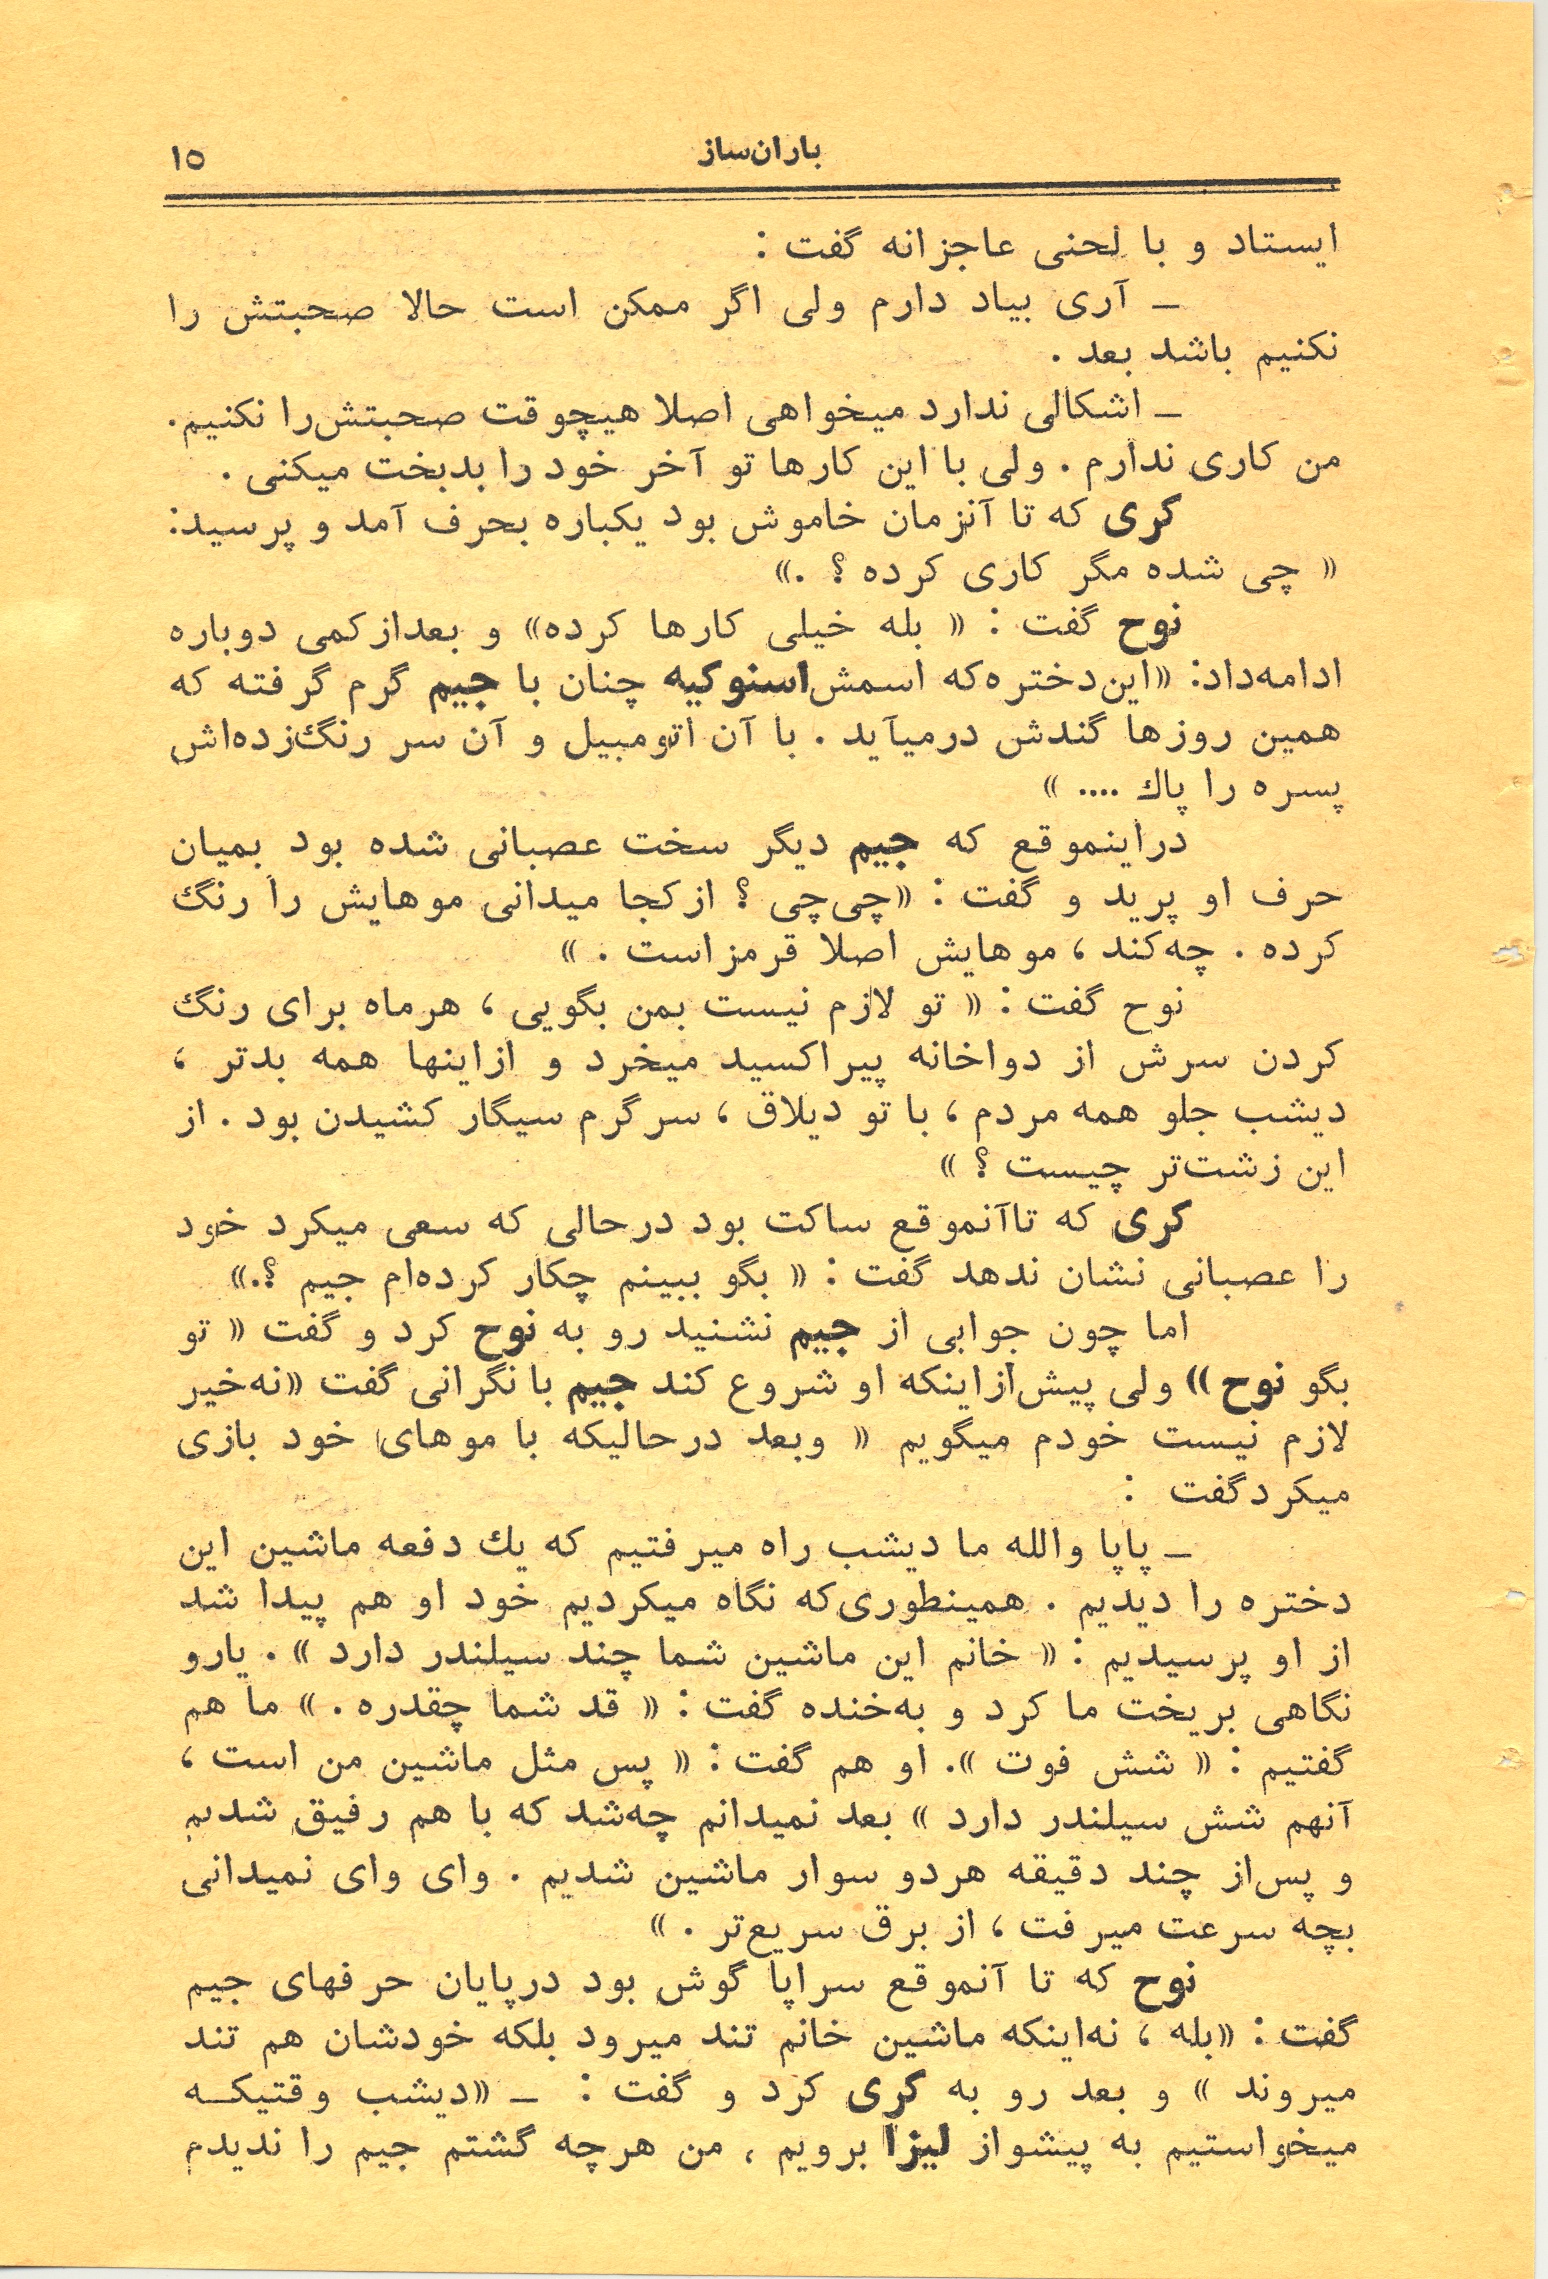 باران‌ساز
۱۵
ایستاد و با لحنی عاجزانه گفت :
ـ آری بیاد دارم ولی اگر ممکن است حالا صحبتش را
نکنیم باشد بعد .
ـ اشکالی ندارد میخواهی اصلا هیچوقت صحبتش‌را نکنیم.
من کاری ندارم . ولی با این کارها تو آخر خود را بدبخت میکنی .
کری که تا آنزمان خاموش بود یکباره بحرف آمد و پرسید:
« چی شده مگر کاری کرده ؟ .»
نوح گفت : « بله خیلی کارها کرده» و بعداز کمی دوباره
ادامه‌داد: «این‌دختره‌که اسمش‌اسنوکیه چنان با جیم گرم گرفته که
همین روزها گندش درمیآید . با آن اتومبیل و آن سر رنگ‌زده‌اش
پسره را پاك .... »
دراینموقع که جیم دیگر سخت عصبانی شده بود بمیان
حرف او پرید و گفت : «چی‌چی ؟ ازکجا میدانی موهایش را رنگ
کرده . چه‌کند ، موهایش اصلا قرمزاست . »
نوح گفت : « تو لازم نیست بمن بگویی ، هرماه برای رنگ
کردن سرش از دواخانه پیراکسید میخرد و ازاینها همه بدتر ،
دیشب جلو همه مردم ، با تو دیلاق ، سرگرم سیگار کشیدن بود . از
این زشت‌تر چیست ؟ »
کری که تاآنموقع ساکت بود درحالی که سعی میکرد خود
را عصبانی نشان ندهد گفت : « بگو ببینم چکار کرده‌ام جیم ؟.»
اما چون جوابی از جیم نشنید رو به نوح کرد و گفت « تو
بگو نوح » ولی پیش‌ازاینکه او شروع کند جیم با نگرانی گفت «نه‌خیر
لازم نیست خودم میگویم « وبعد درحالیکه با موهای خود بازی
میکردگفت :
ـ پاپا والله ما دیشب راه میرفتیم که یك دفعه ماشین این
دختره را دیدیم . همینطوری‌که نگاه میکردیم خود او هم پیدا شد
از او پرسیدیم : « خانم این ماشین شما چند سیلندر دارد » . یارو
نگاهی بریخت ما کرد و به‌خنده گفت : « قد شما چقدره . » ما هم
گفتیم : « شش فوت ». او هم گفت : « پس مثل ماشین من است ،
آنهم شش سیلندر دارد » بعد نمیدانم چه‌شد که با هم رفیق شدیم
و پس‌از چند دقیقه هردو سوار ماشین شدیم . وای وای نمیدانی
بچه سرعت میرفت ، از برق سریع‌تر . »
نوح که تا آنموقع سراپا گوش بود درپایان حرفهای جیم
گفت : «بله ، نه‌اینکه ماشین خانم تند میرود بلکه خودشان هم تند
میروند » و بعد رو به کری کرد و گفت : ـ «دیشب وقتیکـه
میخواستیم به پیشواز لیزا برویم ، من هرچه گشتم جیم را ندیدم